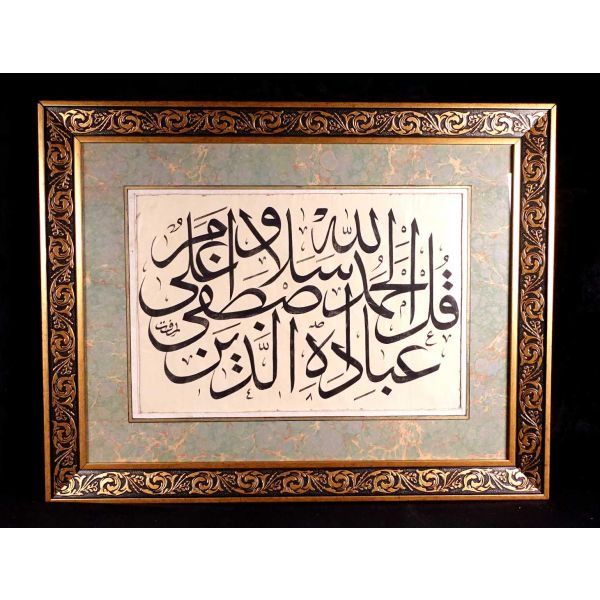 قل الحمد لله وسلام على
عباده الذين اصطفى
١٤١٨